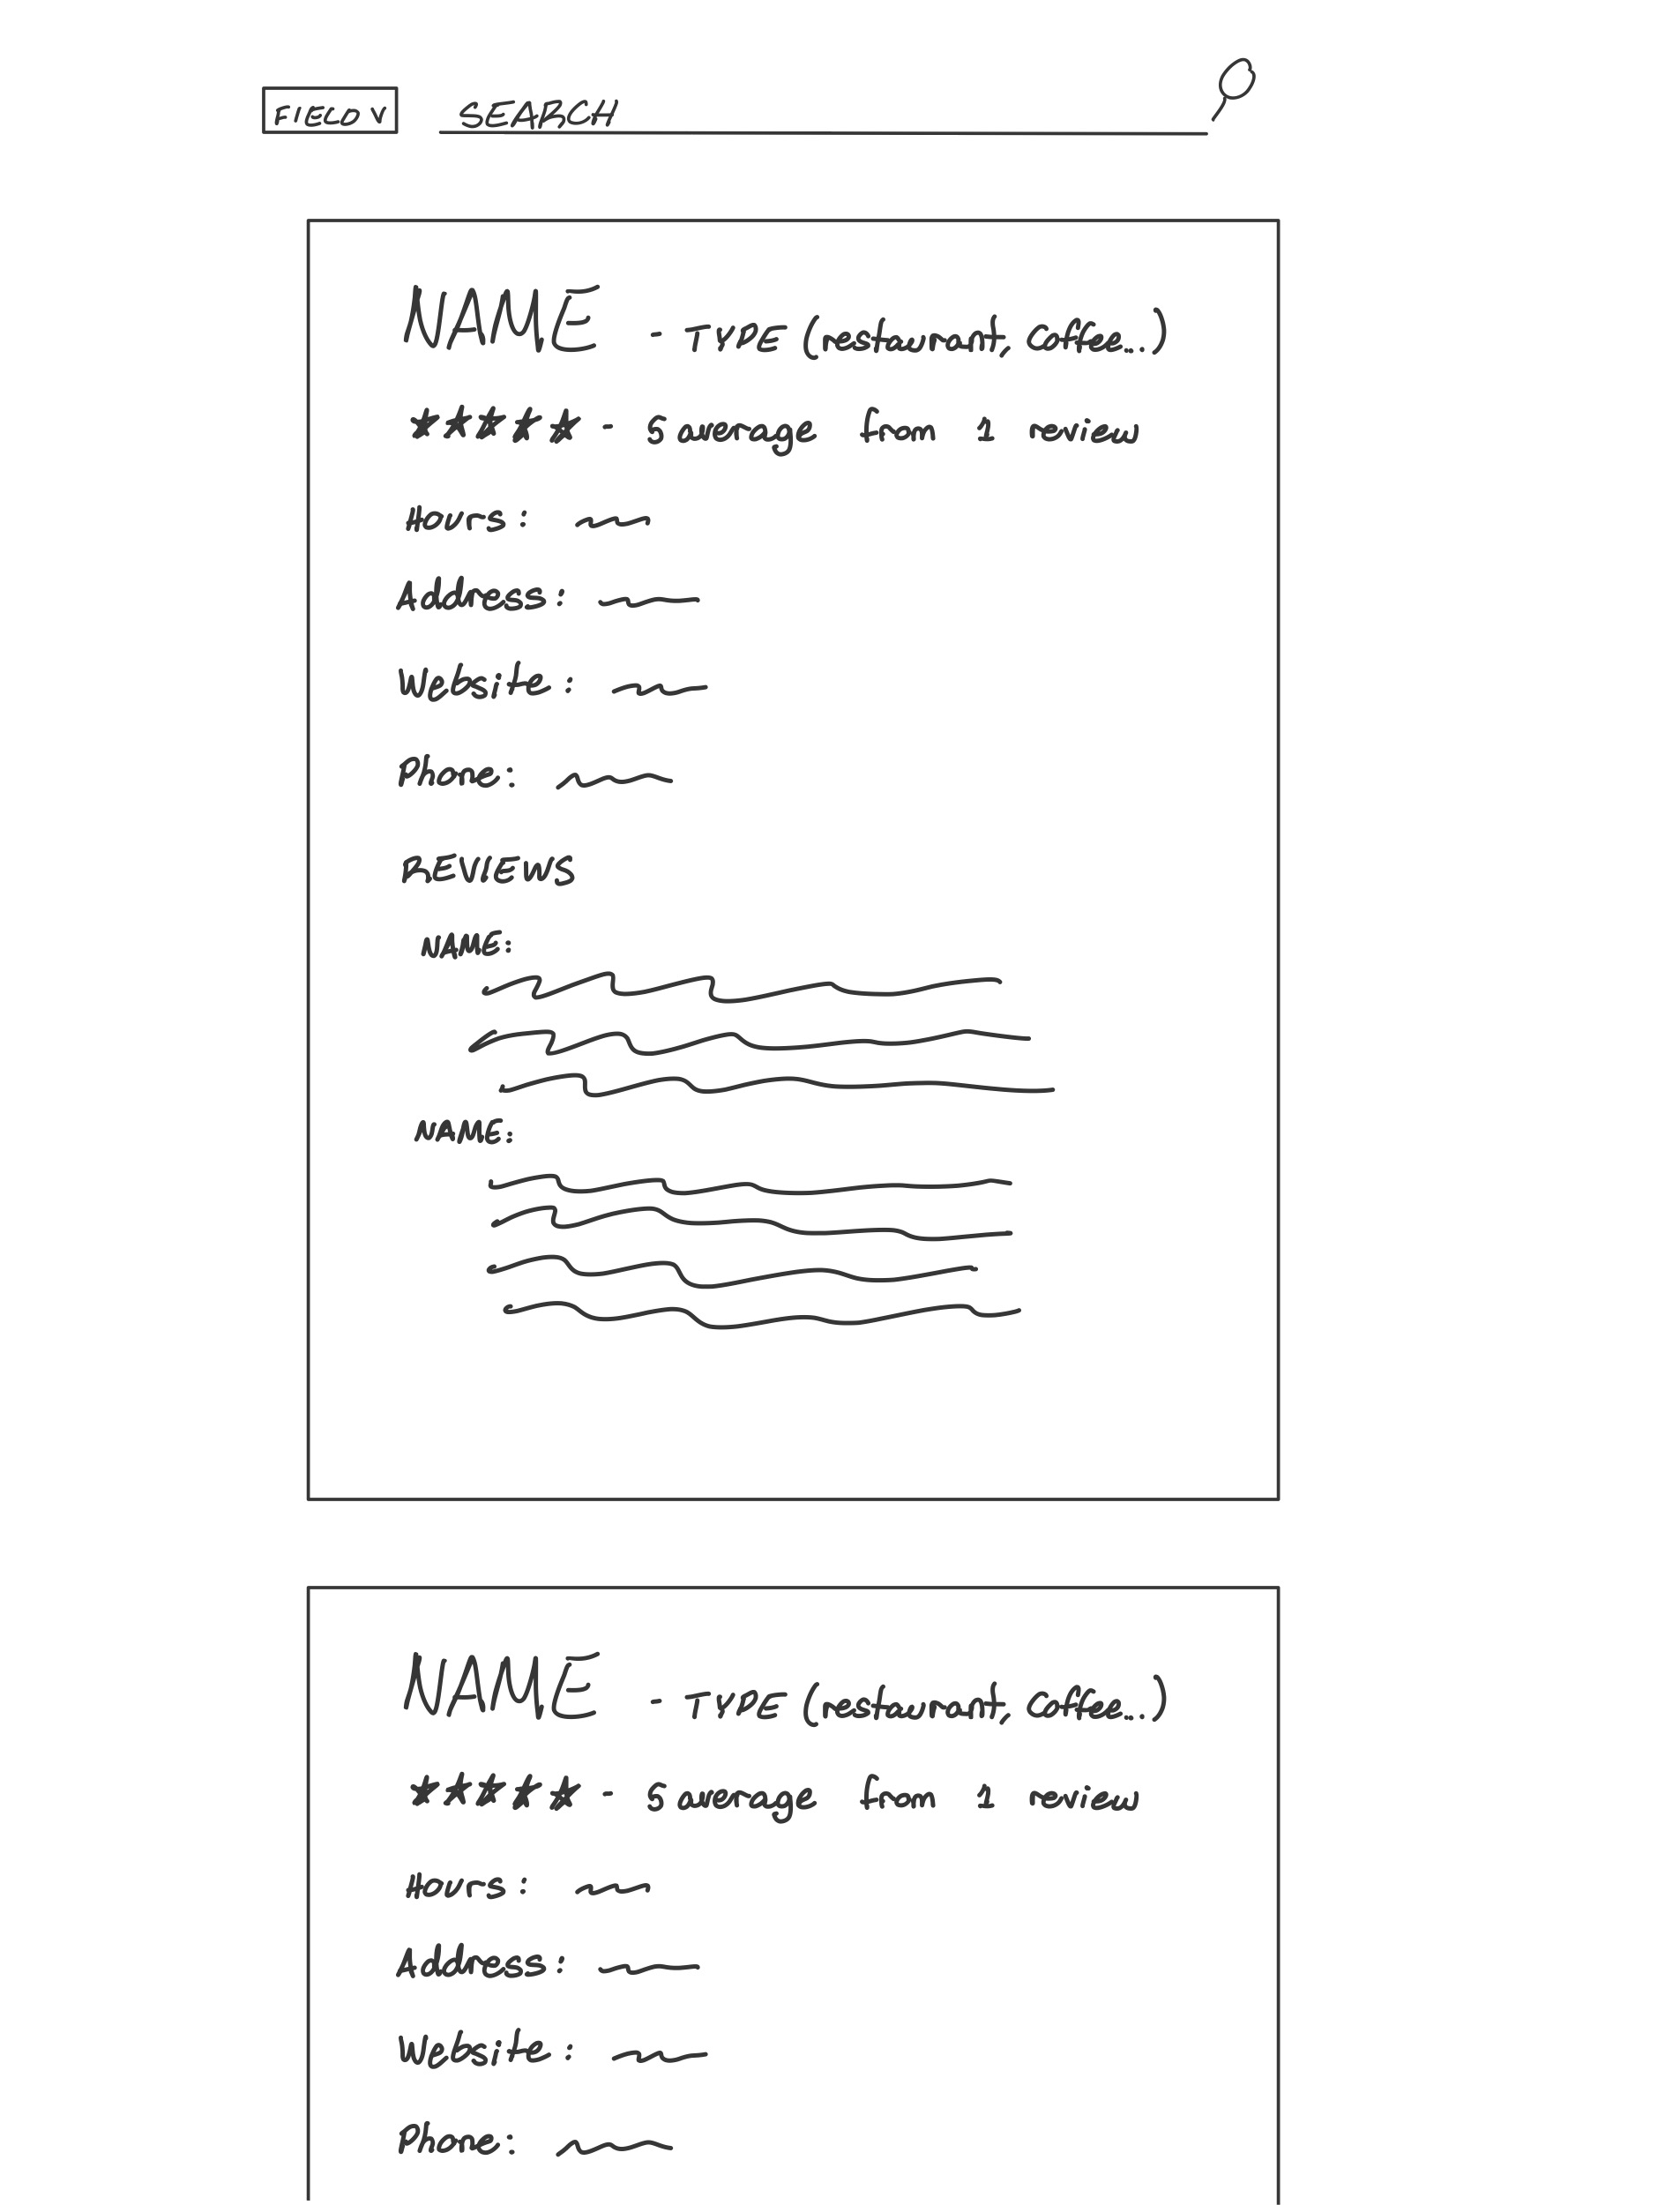 FIELD V SEARCH
NAME - TYPE (restaurant, coffee...)
★★★★★ - 5 average from 1 review
Hours:
Address:
Website:
Phone:
REVIEWS
NAME:
NAME:
NAME - TYPE (restaurant, coffee...)
★★★★★ - 5 average from 1 review
Hours:
Address:
Website:
Phone: